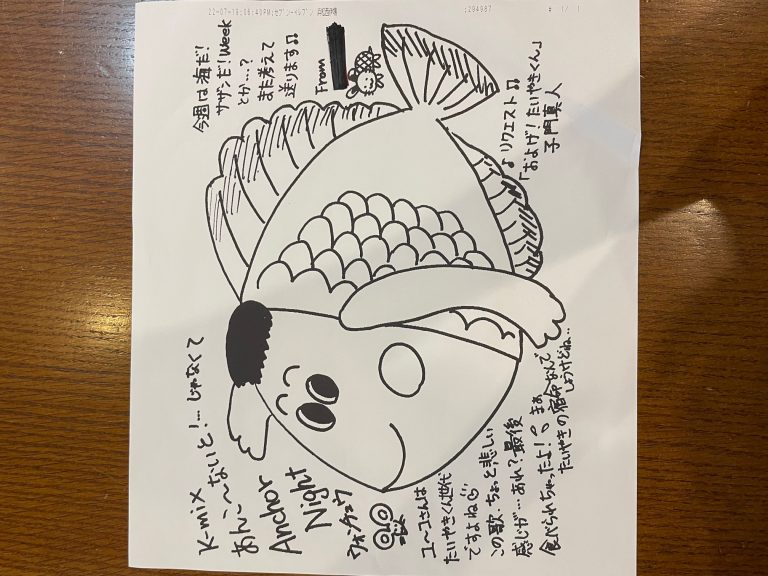 22-07-19;06:40PM;セブン-イレブン ;204987 # 1/ 1
K-mix
あんこ〜ないと!…じゃなくて
Anchor
Night
ウォンチュウ
今週は海だ!
サザンだ!Week
とか…?
また考えて
送ります♫
From
ユーコさんは
たいやきくん世代
ですよね
この歌、ちょっと悲しい
感じが…あれ?最後
食べられちゃったよ! まぁ
たいやきの宿命なんで
しょうけどね…
♪リクエスト♫
「およげ!たいやきくん」
子門真人